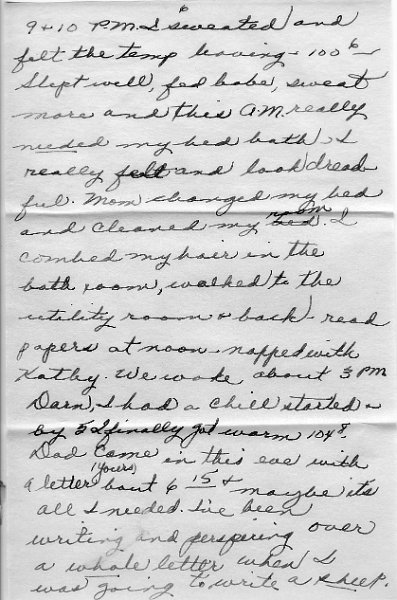 9 + 10 P.M. I sweated and
felt the temp leaving - 100⁶ -
Slept well, fed babe, sweat
more and this A.M. really
needed my bed bath. I
really felt and look dread-
ful. Mom changed my bed
and cleaned my bed room. I
combed my hair in the
bath room, walked to the
utility room & back - read
papers at noon - napped with
Kathy. We woke about 3 PM
Darn, I had a chill started &
by 5 I finally got warm 104⁸.
Dad (yours) came in this eve with
a letter bout 6 15 + maybe its
all I needed. I've been
writing and perspiring over
a whole letter when I
was going to write a sheet.